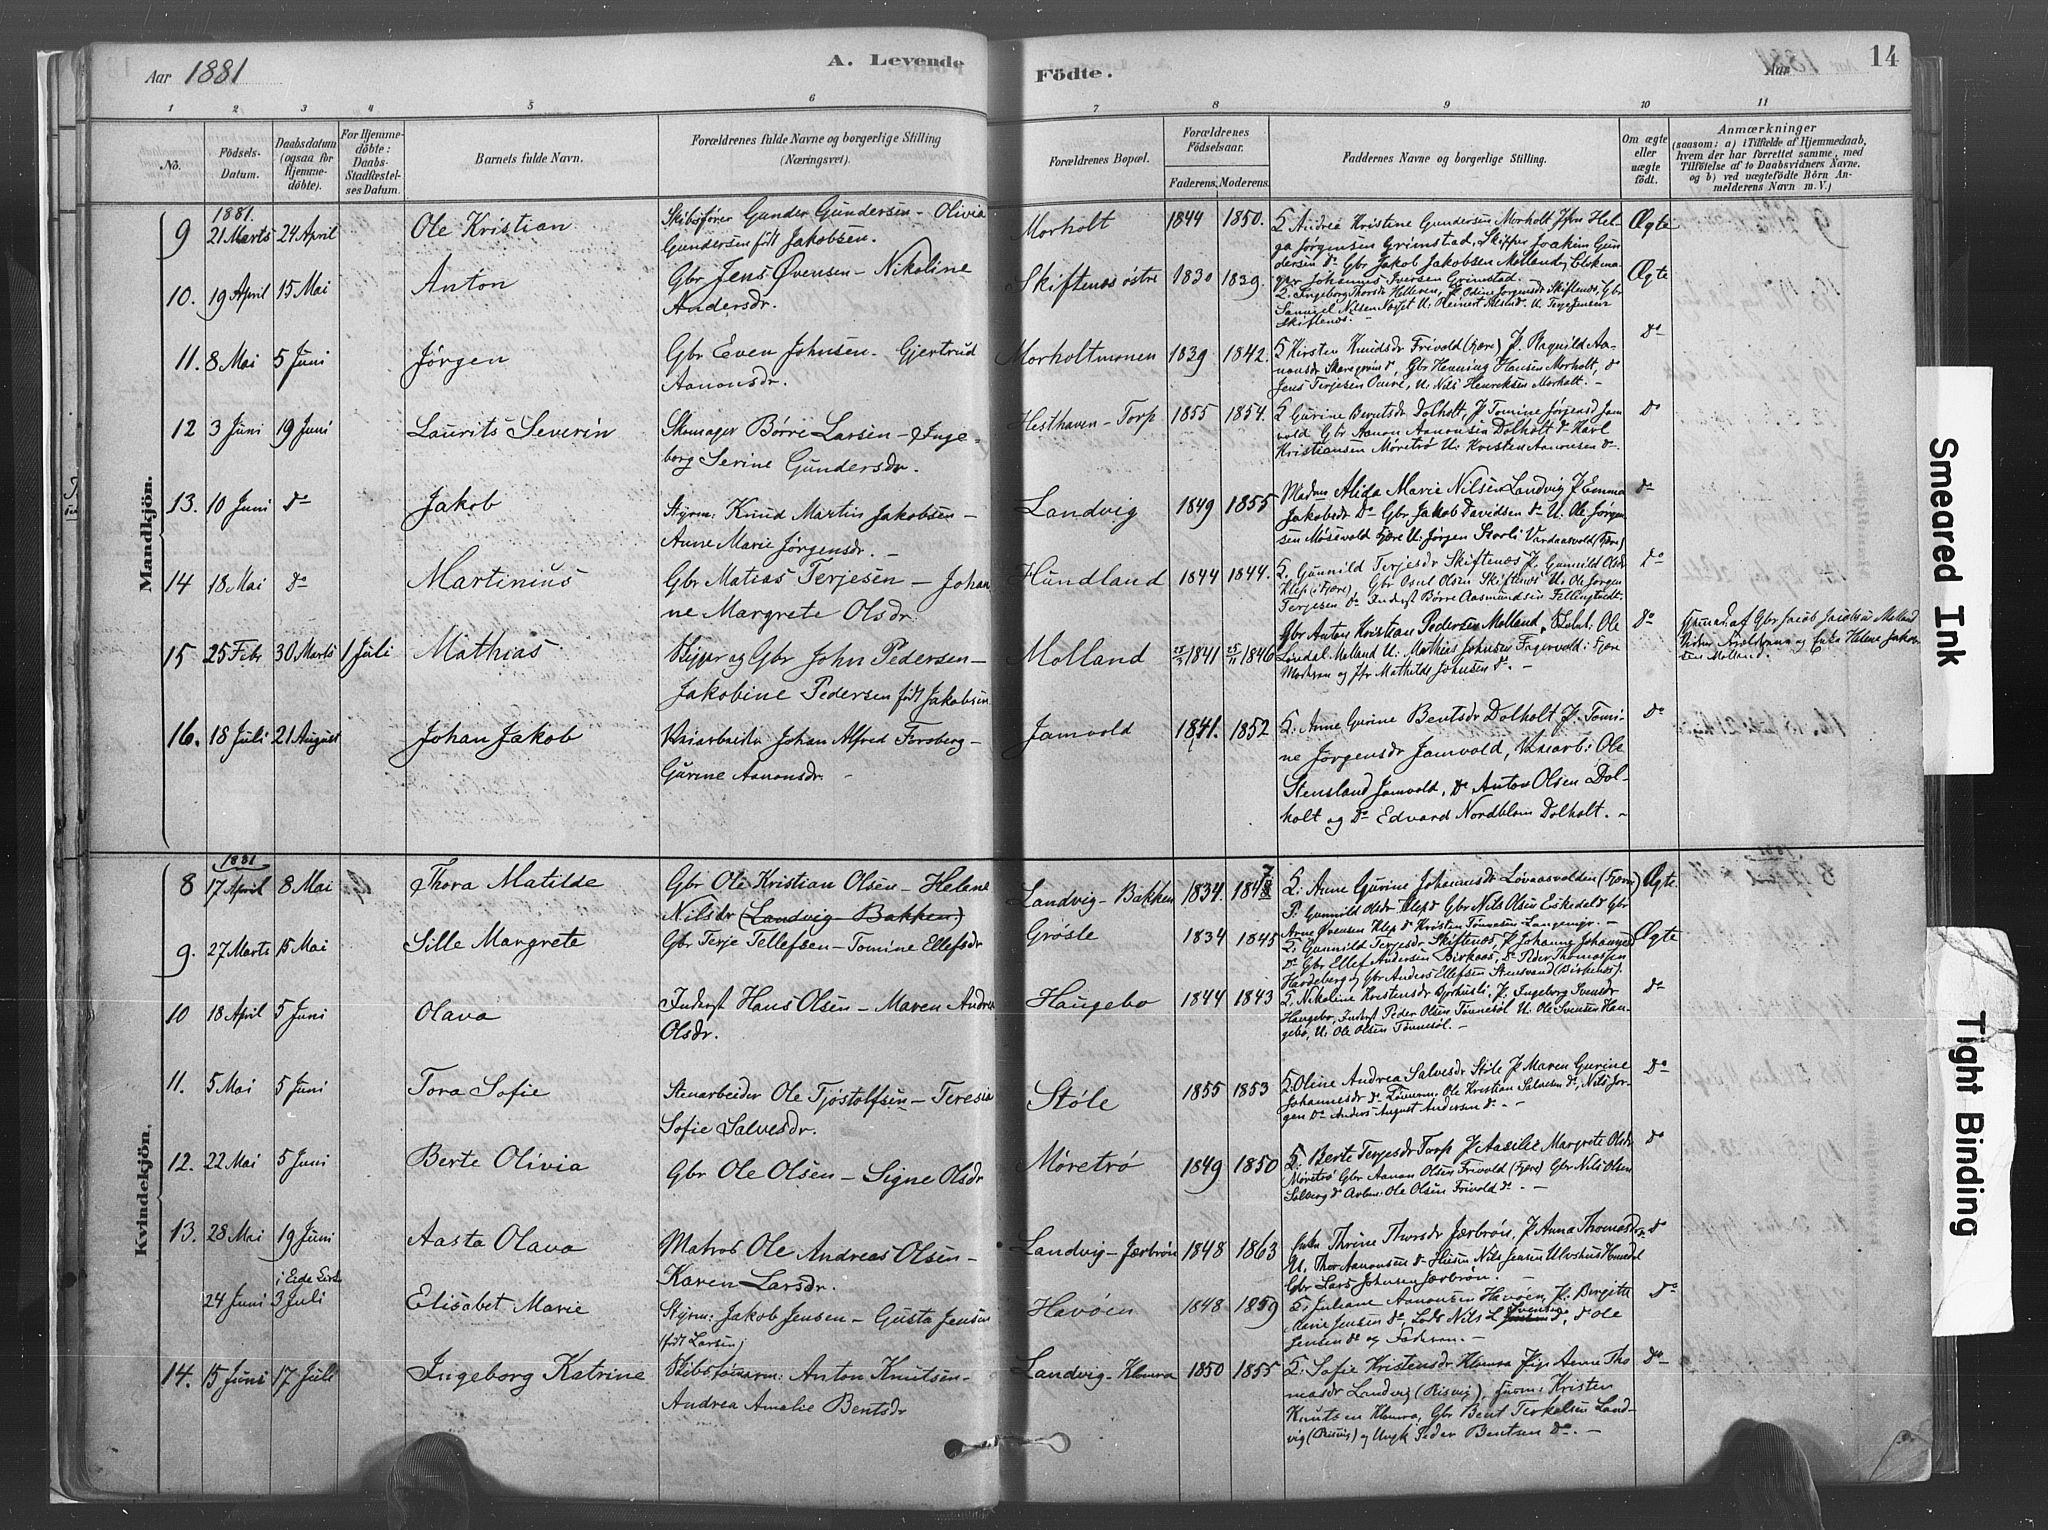 Aar 1881 A. Levende Födte. Aar 1881 14
1 2 3 4 5 6 7 8 9 10 11
No. Födsels-Datum. Daabsdatum (ogsaa for Hjemmedöbte). For Hjemmedöbte: Daabs-Stadfæstelses Datum. Barnets fulde Navn. Forældrenes fulde Navne og borgerlige Stilling (Næringsvei). Forældrenes Bopæl. Forældrenes Födselsaar. Faderens. Moderens. Faddernes Navne og borgerlige Stilling. Om ægte eller uægte födt. Anmærkninger (saasom: a) i Tilfælde af Hjemmedaab, hvem der har forrettet samme, med Tilföielse af to Daabsvidners Navne, og b) ved uægtefödte Börn Anmelderens Navn m. V.)
Mandkjön.
1881.
9 21 Marts 24 April Ole Kristian Skibsfører Gunder Gundersen - Olivia Gundersen født Jakobsen. Morholt 1844 1850. Andrea Kristine Gundersen Morholt Jfru Helga Jørgensen Grimstad, Skipper Joakim Gundersen do Gbr Jakob Jakobsen Molland, Johannes Iversen Grimstad. Ægte
10. 19 April 15 Mai Anton Gbr Jens Øvensen - Nikoline Andersdr. Skiftenes østre 1830 1839. Ingeborg Helleren, P. Odine Jorgensdr Skiftenes, Gbr Samuel Nilsen U. Reinert U. Terje Jensen Skiftenes. Ægte
11. 8 Mai 5 Juni Jørgen Gbr Even Johnsen. Gjertrud Aanonsdr. Morholtmonen 1839 1842. Kirsten Knudsdr Frivold (Fjære) P. Ragnild Aanonsdr do, Gbr Henning Hansen Morholt, do Jens Terjesen U. Nils Henriksen Morholt. - do
12 3 Juni 19 Juni Laurits Severin Skomager Børre Larsen - Ingeborg Serine Gundersdr. Hesthaven - Torp 1855 1854. Gurine Berntsdr Dolholt, P. Tomine Jørgensd Jamvold Gbr Aanon Aanonsen Dolholt do Karl Kristiansen Møretrø U. Kristen Aanonsen do - do
13. 10 Juni do Jakob Styrm: Knud Martin Jakobsen - Anne Marie Jørgensdr. - Landvig 1849 1855 Madam Alida Marie Nilsen Landvig P. Emma Jakobsdr do Gbr Jakob Davidsen do U. Ole Jorgensen Møsevold Fjære U. Jørgen Vardaasvold (Fjære) do
14 18 Mai do Martinius Gbr Matias Terjesen - Johanne Margrete Olsdr. Hundland 1844 1844. Gunnild Terjesdr Skiftenes P. Gunnild Olsdr Klep (Fjære), Gbr Osul Olsen Skiftenes U. Ole Jorgen Terjesen do Inderst Børre Aasmundsen do
15 25 Febr 30 Marts 1 Juli Mathias Skipper og Gbr John Pedersen - Jakobine Pedersen født Jakobsen Molland 1841 1846 Gbr Anton Kristian Pedersen Molland, Ole Løvdal Molland U. Mathias Johnsen Fagervold i Fjære Moderen og Jfr Mathilde Johnsen do - do Hjemmed. af Gbr Jacob Jacobsen Molland og Enke Helene Jakobsen Molland.
16. 18 Juli 21 August Johan Jakob Veiarbeider Johan Alfred Forsberg - Gurine Aanonsdr. - Jamvold 1841. 1852 Anne Gurine Bentsdr Dolholt P. Tomine Jørgensdr Jamvold, Veiarb: Ole Stensland Jamvold, do Anton Olsen Dolholt og do Edvard Nordblom Dolholt. - do
Kvindekjön.
1881
8 17 April 8 Mai Thora Matilde Gbr Ole Kristian Olsen - Helene Nilsdr (Landvig-Bakken) Landvig - Bakken 1834. 1848 Anne Gurine Johannesdr Lovaasvolden (Fjære) P. Gunnild Olsdr Klep do Gbr Nils Olsen Eskedal do Gbr Arne Øvensen Klep do Kristen Tønnesen Langemyr. - Ægte
9. 27 Marts 15 Mai Sille Margrete Gbr Terje Tellefsen - Tomine Ellefsdr Grøsle 1834 1845 Gunnild Terjesdr Skiftenes, P. Johanne do Gbr Ellef Andersen Birkaas, do Peder Thomassen Hardeberg og Gbr Anders Ellefsen Stensvand (Birkenes). Ægte
10 18 April 5 Juni Olava Inderst Hans Olsen - Maren Andrea Olsdr. Haugebo 1844 1843 Nikoline Kristensdr Bjorkusli, P. Ingeborg Svensdr Haugebo, Inderst Peder Olsen Tønnesøl U. Ole Svensen Haugebo, U. Ole Olsen Tønnesøl. - do
11. 5 Mai 5 Juni Tora Sofie Stenarbeider Ole Tjøstolfsen - Teresia Sofie Salvesdr. Støle 1855 1853 Oline Andrea Salvesdr Støle P. Maren Gurine Johannesdr do Ole Kristian Salvesen do, Nils Jorgen do Anders August Andersen do. - do
12. 22 Mai 5 Juni Berte Olivia Gbr Ole Olsen - Signe Olsdr Møretrø 1849 1850 Berte Terjesdr Torp P. Aasille Margrete Olsdr Møretrø Gbr Aanon Olsen Frivold (Fjære) Gbr Nils Olsen Solberg do Arbm: Ole Olsen Frivold do. - do
13. 28 Mai 19 Juni Aasta Olava Matros Ole Andreas Olsen - Karen Larsdr. Landvig - Jærbrøn 1848 1863 Enke Thrine Thorsdr Jærbrøn, P. Anna Thomasdr do U. Thor Aanonsen do Nils Jensen Gbr Lars Johnsen Jærbrøn. - do
24 Juni i Eide Kirk 3 Juli Elisabet Marie Styrm: Jakob Jensen - Gusta Jensen (født Larsen) Havøen 1848 1859 Juliane Aanonsen Havøen, P. Birgitte Marie Jensen do, Lods Nils Svensen do, do Ole Jensen do og Faderen. - do
14. 15 Juni 17 Juli Ingeborg Katrine Skibstømrm: Anton Knutsen - Andrea Amalie Bentsdr Landvig - Klomra 1850 1855 Sofie Kristensdr Klomra Pige Anne Thomasdr Landvig (Risvig), Kristen Knutsen Klomra, Gbr Bent Terkelsen Landvig (Risvig) og Ungk Peder Bentsen do. - do
Smeared Ink
Tight Binding